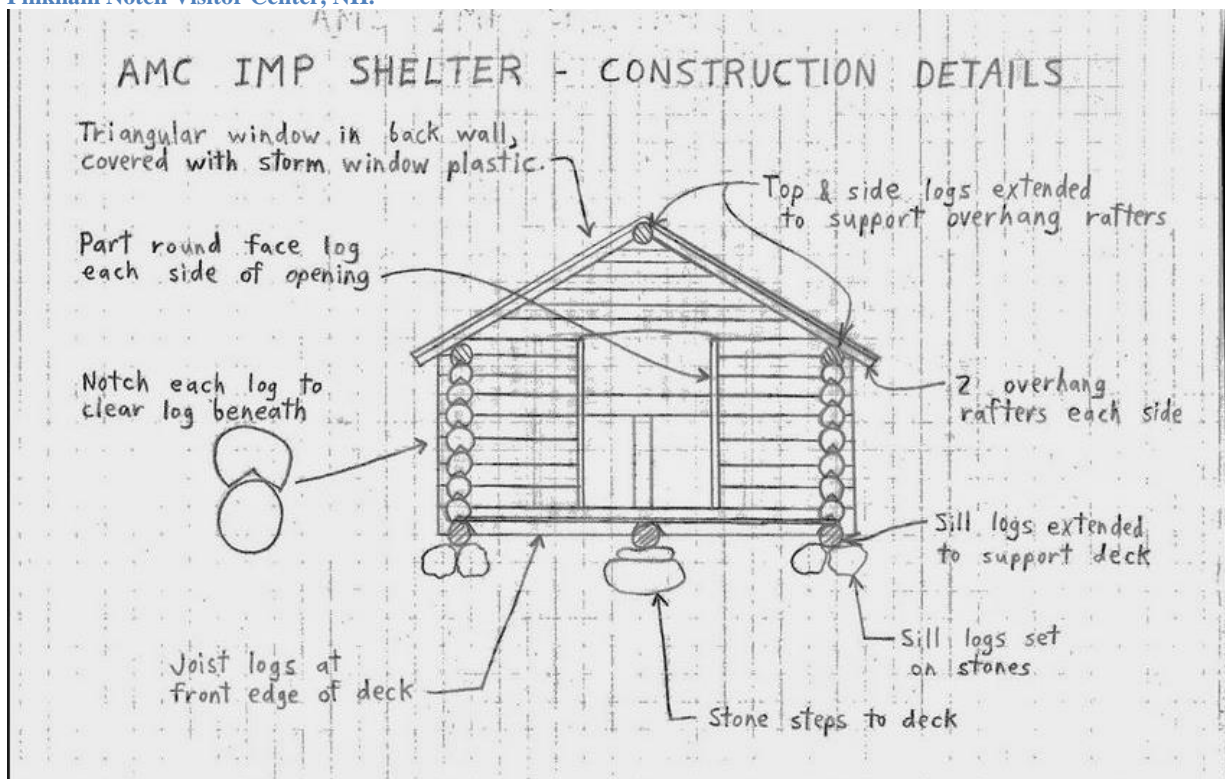 Pinkham Notch Visitor Center, NH.
AMC IMP SHELTER - CONSTRUCTION DETAILS
Triangular window in back wall,
covered with storm window plastic.
Top & side logs extended
to support overhang rafters
Part round face log
each side of opening
Notch each log to
clear log beneath
2 overhang
rafters each side
Sill logs extended
to support deck
Sill logs set
on stones
Joist logs at
front edge of deck
Stone steps to deck